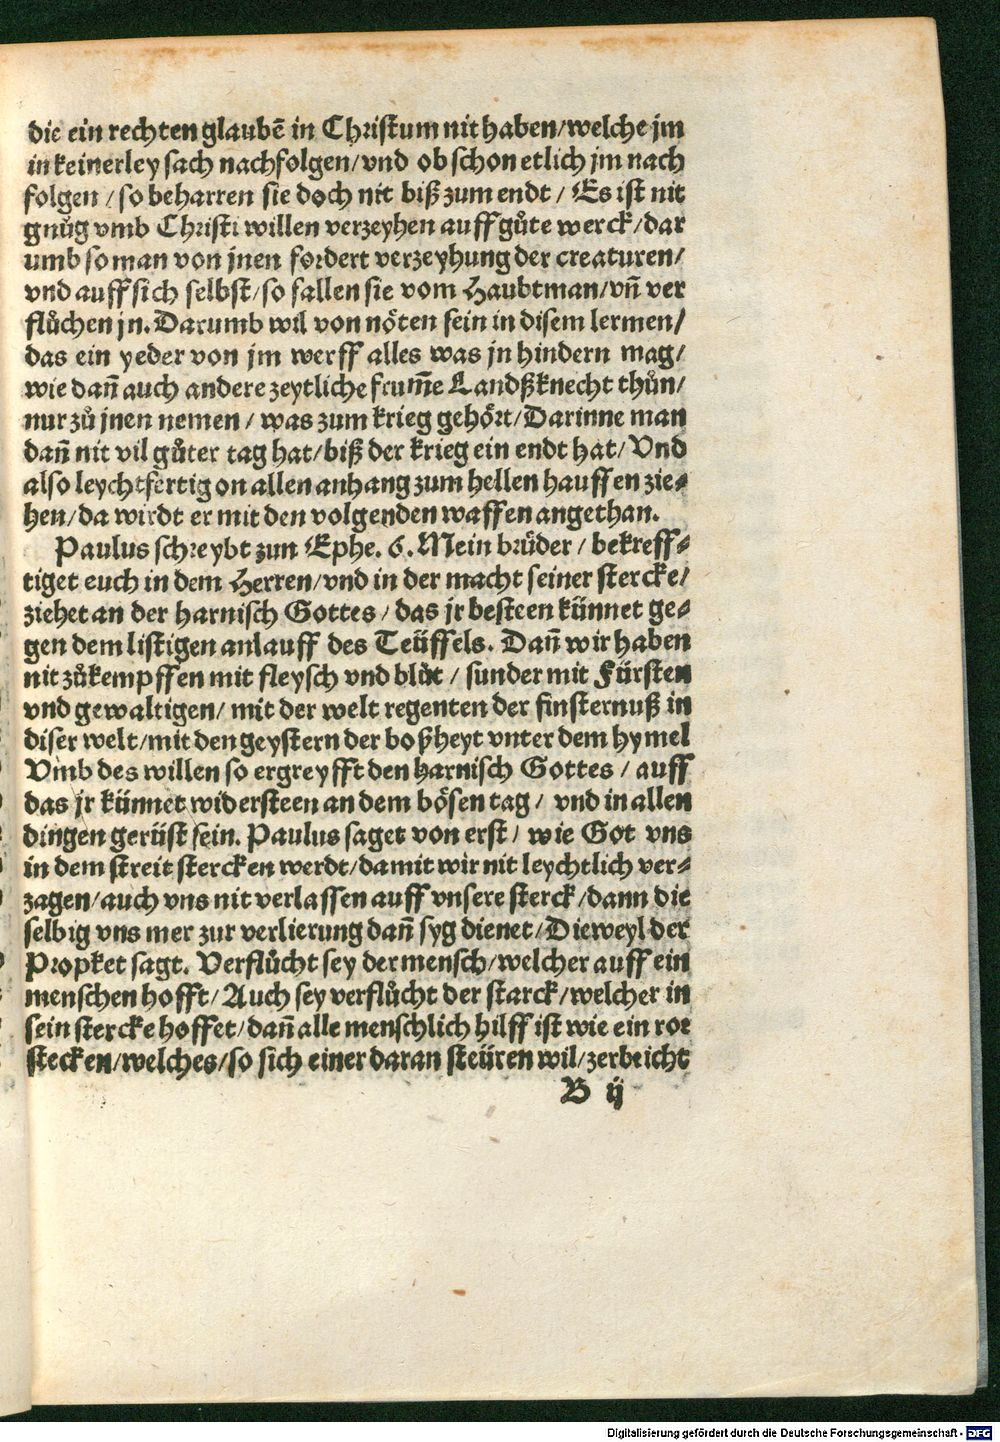 die ein rechten glaubē in Christum nit haben/welche jm
in keinerley sach nachfolgen/vnd ob schon etlich jm nach
folgen / so beharren sie doch nit biß zum endt / Es ist nit
gnůg vmb Christi willen verzeyhen auff gůte werck/dar
umb so man von jnen fordert verzeyhung der creaturen/
vnd auff sich selbst/so fallen sie vom Haubtman/vn̄ ver
flůchen jn. Darumb wil von nöten sein in disem lermen/
das ein yeder von jm werff alles was jn hindern mag/
wie dan̄ auch andere zeytliche frum̄e Landßknecht thůn/
nur zů jnen nemen / was zum krieg gehört/Darinne man
dan̄ nit vil gůter tag hat/biß der krieg ein endt hat/ Vnd
also leychtfertig on allen anhang zum hellen hauffen zie-
hen/da wirdt er mit den volgenden waffen angethan.
Paulus schreybt zun Ephe. 6. Mein brüder / bekreff-
tiget euch in dem Herren/vnd in der macht seiner stercke/
ziehet an der harnisch Gottes / das jr besteen künnet ge-
gen dem listigen anlauff des Teüffels. Dan̄ wir haben
nit zůkempffen mit fleysch vnd blůt / sunder mit Fürsten
vnd gewaltigen/ mit der welt regenten der finsternuß in
diser welt/mit den geystern der boßheyt vnter dem hymel
Vmb des willen so ergreyfft den harnisch Gottes / auff
das jr künnet widersteen an dem bösen tag / vnd in allen
dingen gerüst sein. Paulus saget von erst / wie Got vns
in dem streit stercken werdt/damit wir nit leychtlich ver-
zagen/auch vns nit verlassen auff vnsere sterck /dann die
selbig vns mer zur verlierung dan̄ syg dienet/Dieweyl der
Propket sagt. Verflůcht sey der mensch/welcher auff ein
menschen hofft/ Auch sey verflůcht der starck/welcher in
sein stercke hoffet/dan̄ alle menschlich hilff ist wie ein ror
stecken/welches/so sich einer daran steüren wil/zerbricht
B ij
Digitalisierung gefördert durch die Deutsche Forschungsgemeinschaft - DFG